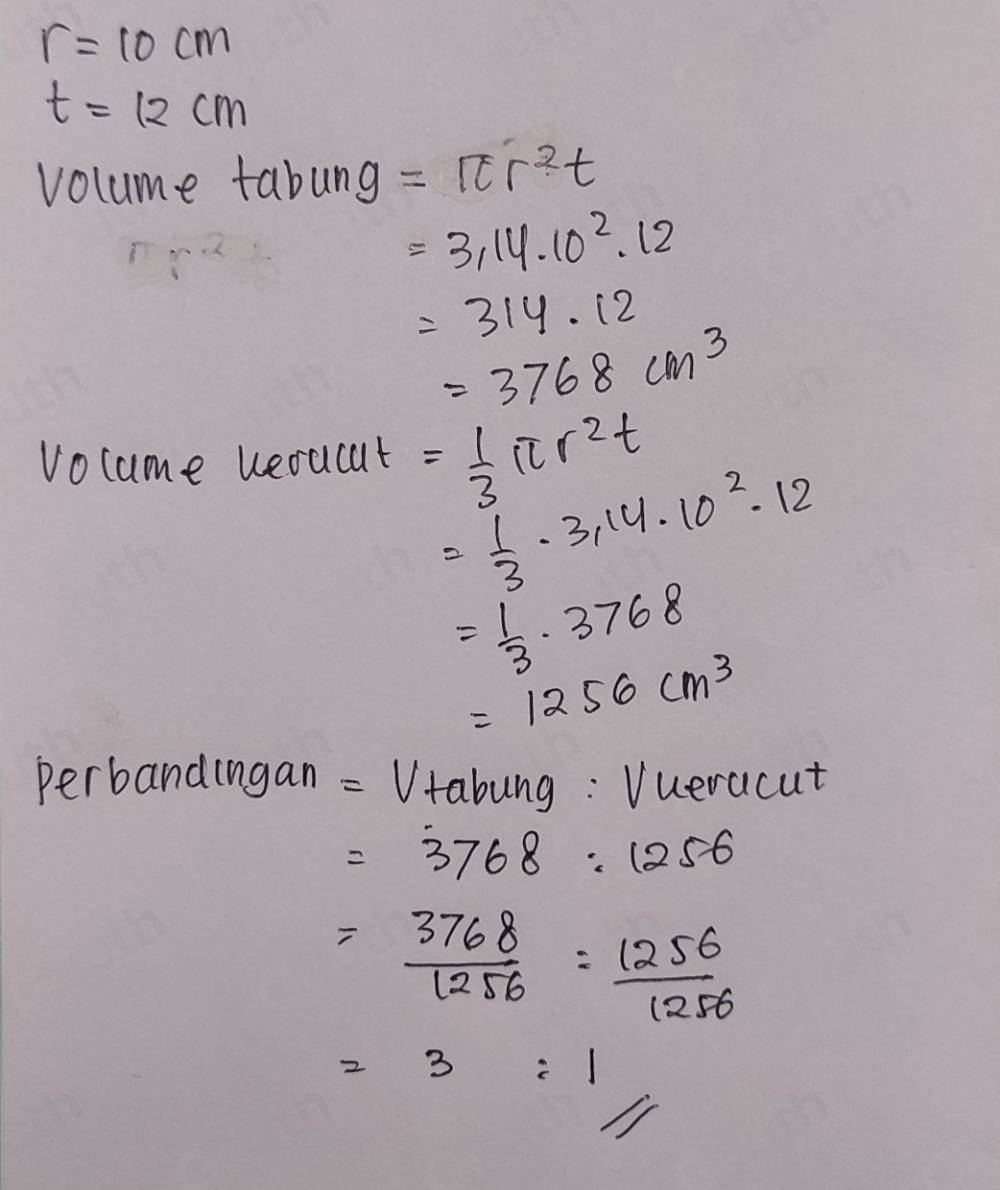 r = 10 cm
t = 12 cm
Volume tabung = πr²t
πr²
= 3,14 . 10² . 12
= 314 . 12
= 3768 cm³
Volume kerucut = 1/3 πr²t
= 1/3 . 3,14 . 10² . 12
= 1/3 . 3768
= 1256 cm³
Perbandingan = Vtabung : Vkerucut
= 3768 : 1256
= 3768/1256 : 1256/1256
= 3 : 1